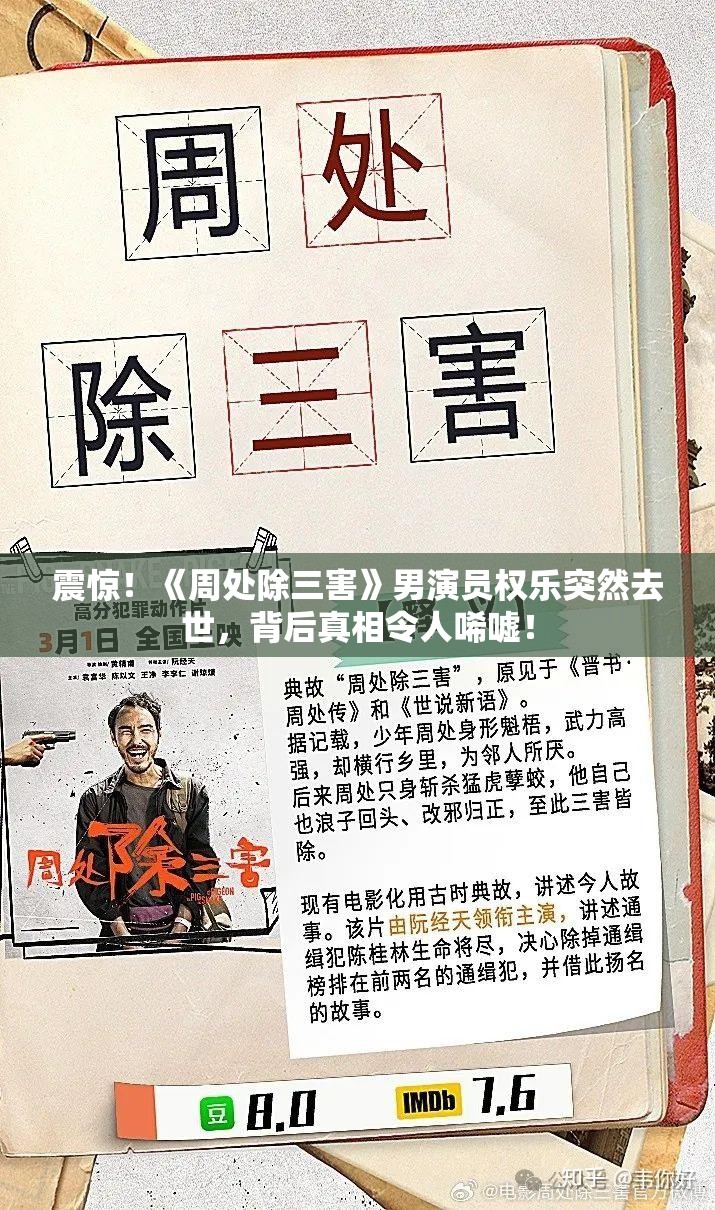 周处
除三害
震惊！《周处除三害》男演员权乐突然去
世，背后真相令人唏嘘！
高分犯罪动作片
3月1日 全国上映
主演：袁富华 陈以文 王净 李李仁 谢琼煖
周处除三害
THE PIG
PIGEON
典故“周处除三害”，原见于《晋书·
周处传》和《世说新语》。
据记载，少年周处身形魁梧，武力高
强，却横行乡里，为邻人所厌。
后来周处只身斩杀猛虎孽蛟，他自己
也浪子回头、改邪归正，至此三害皆
除。
现有电影化用古时典故，讲述今人故
事。该片由阮经天领衔主演，讲述通
缉犯陈桂林生命将尽，决心除掉通缉
榜排在前两名的通缉犯，并借此扬名
的故事。
豆 8.0 IMDb 7.6
知乎 @韦你好
@电影周处除三害官方微博